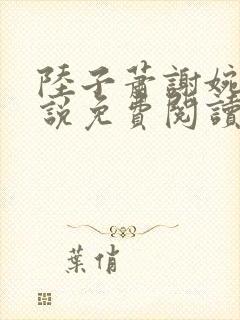 陸子蕭謝婉
說免費閱讀
葉俏